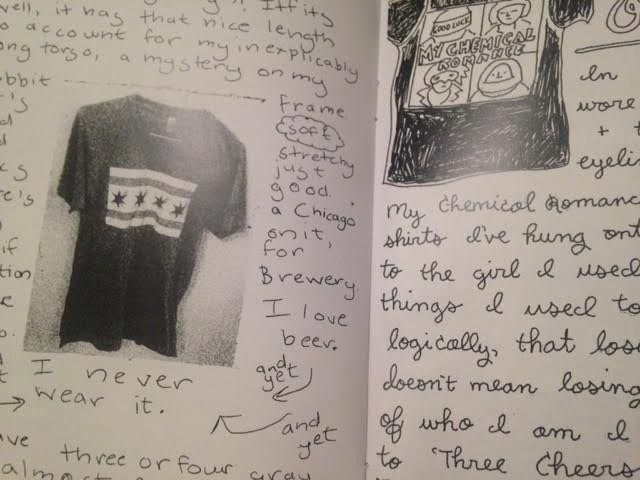 well, it has that nice length
to account for my inexplicably
long torso, a mystery on my
frame.
soft
stretchy
just
good.
a Chicago
on it,
for
Brewery.
I love
beer.
and
yet
I never
wear it.
and
yet
three or four gray
almost
GOOD LUCK
MY CHEMICAL
ROMANCE
In
wore
+ +
My Chemical Romanc
shirts I've hung ont
to the girl I used
things I used to
logically, that los
doesn't mean losing
of who I am I
to "Three Cheers